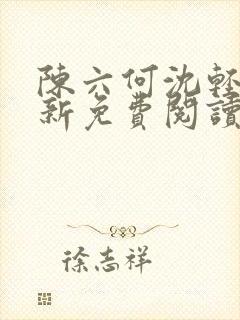 陳六何沈輕
新免費閱讀
徐志祥